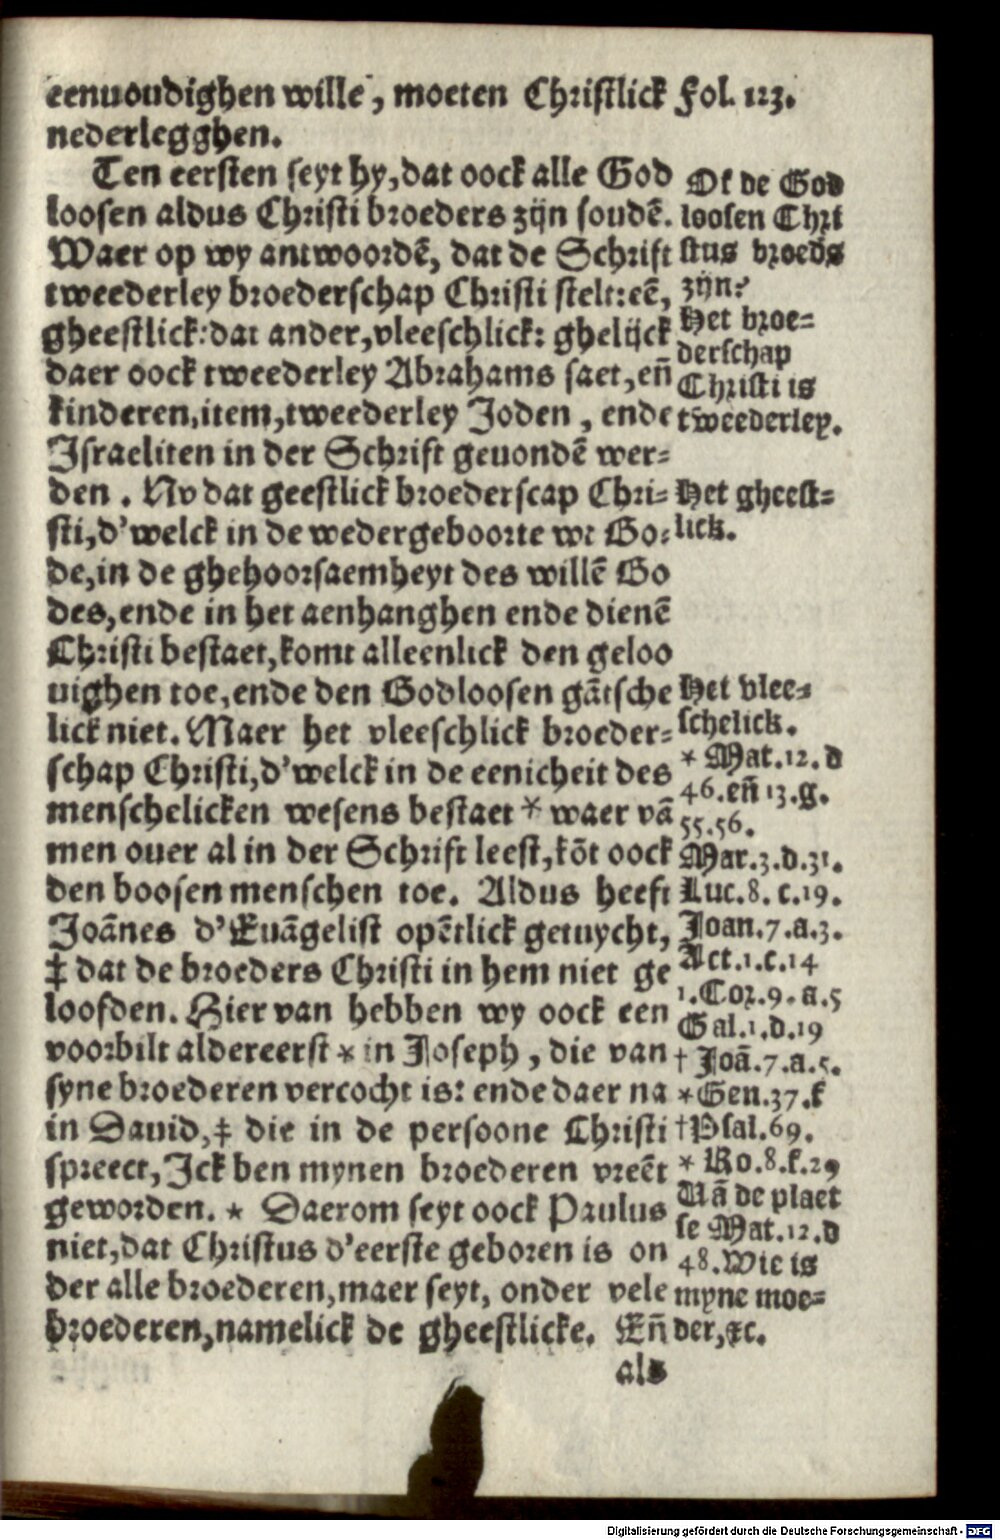 eenuoudighen wille, moeten Christlick
nederlegghen.
Ten eersten seyt hy, dat oock alle God
loosen aldus Christi broeders zijn soudē.
Waer op wy antwoordē, dat de Schrift
tweederley broederschap Christi stelt: eē,
gheestlick: dat ander, vleeschlick: ghelijck
daer oock tweederley Abrahams saet, eñ
kinderen, item, tweederley Joden, ende
Israeliten in der Schrift geuondē wer=
den. Nv dat geestlick broederscap Chri=
sti, d'welck in de wedergeboorte wt Go=
de, in de ghehoorsaemheyt des willē Go
des, ende in het aenhanghen ende dienē
Christi bestaet, komt alleenlick den geloo
uighen toe, ende den Godloosen gātsche
lick niet. Maer het vleeschlick broeder=
schap Christi, d'welck in de eenicheit des
menschelicken wesens bestaet * waer vā
men ouer al in der Schrift leest, kōt oock
den boosen menschen toe. Aldus heeft
Joānes d'Euāgelist opētlick getuycht,
‡ dat de broeders Christi in hem niet ge
loofden. Hier van hebben wy oock een
voorbilt aldereerst * in Joseph, die van
syne broederen vercocht is: ende daer na
in Dauid, ‡ die in de persoone Christi
spreect, Ick ben mynen broederen vreēt
geworden. * Daerom seyt oock Paulus
niet, dat Christus d'eerste geboren is on
der alle broederen, maer seyt, onder vele
broederen, namelick de gheestlicke. Eñ
als
Fol. 123.
Of de God
loosen Chri
stus broeds
zijn?
Het broe=
derschap
Christi is
tweederley.
Het gheest=
lick.
Het vlee=
schelick.
* Mat.12.d
46.eñ 13.g.
55.56.
Mar.3.d.31.
Luc.8.c.19.
Joan.7.a.3.
Act.1.c.14
1.Cor.9.a.5
Gal.1.d.19
† Joā.7.a.5.
* Gen.37.f
† Psal.69.
* Ro.8.f.29
Uā de plaet
se Mat.12.d
48. Wie is
myne moe=
der, &c.
Digitalisierung gefördert durch die Deutsche Forschungsgemeinschaft - DFG